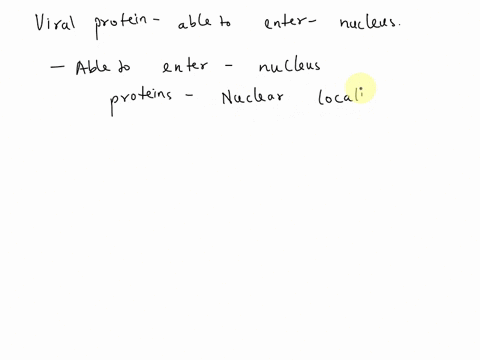 Viral protein - able to enter - nucleus.
- Able to enter - nucleus
proteins - Nuclear locali